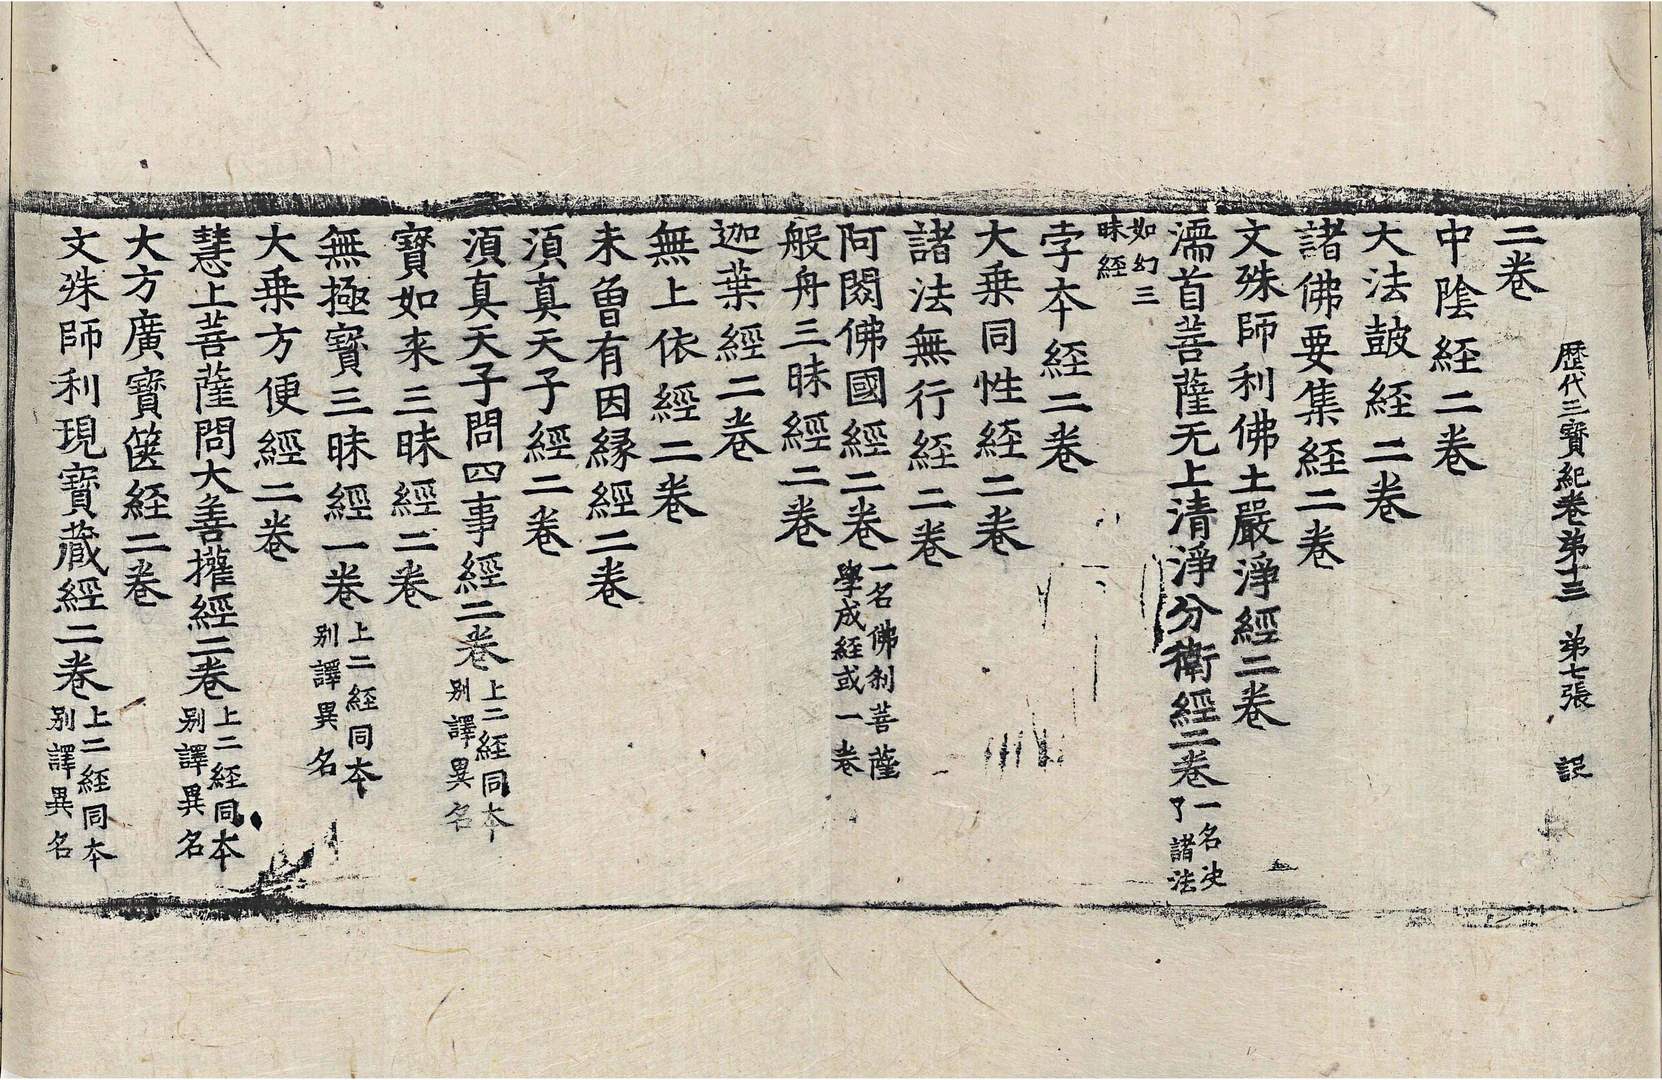 歷代三寶紀卷第十三 第七張 設
二卷
中陰経二卷
大法皷経二卷
諸佛要集経二卷
文殊師利佛土嚴淨經二卷
濡首菩薩无上清淨分衛經二卷 一名决
了諸法
如幻三
昧經
孛本經二卷
大乗同性経二卷
諸法無行経二卷
阿閦佛國經二卷 一名佛刹菩薩
學成経或一卷
般舟三昧經二卷
迦葉經二卷
無上依經二卷
未曾有因縁経二卷
湏真天子經二卷
湏真天子問四事經二卷 上二経同本
别譯異名
寳如来三昧經二卷
無極寳三昧經一卷 上二經同本
别譯異名
大乗方便經二卷
慧上菩薩問大善攉經二卷 上二経同本
别譯異名
大方廣寳篋経二卷
文殊師利現寳藏經二卷 上二経同本
别譯異名